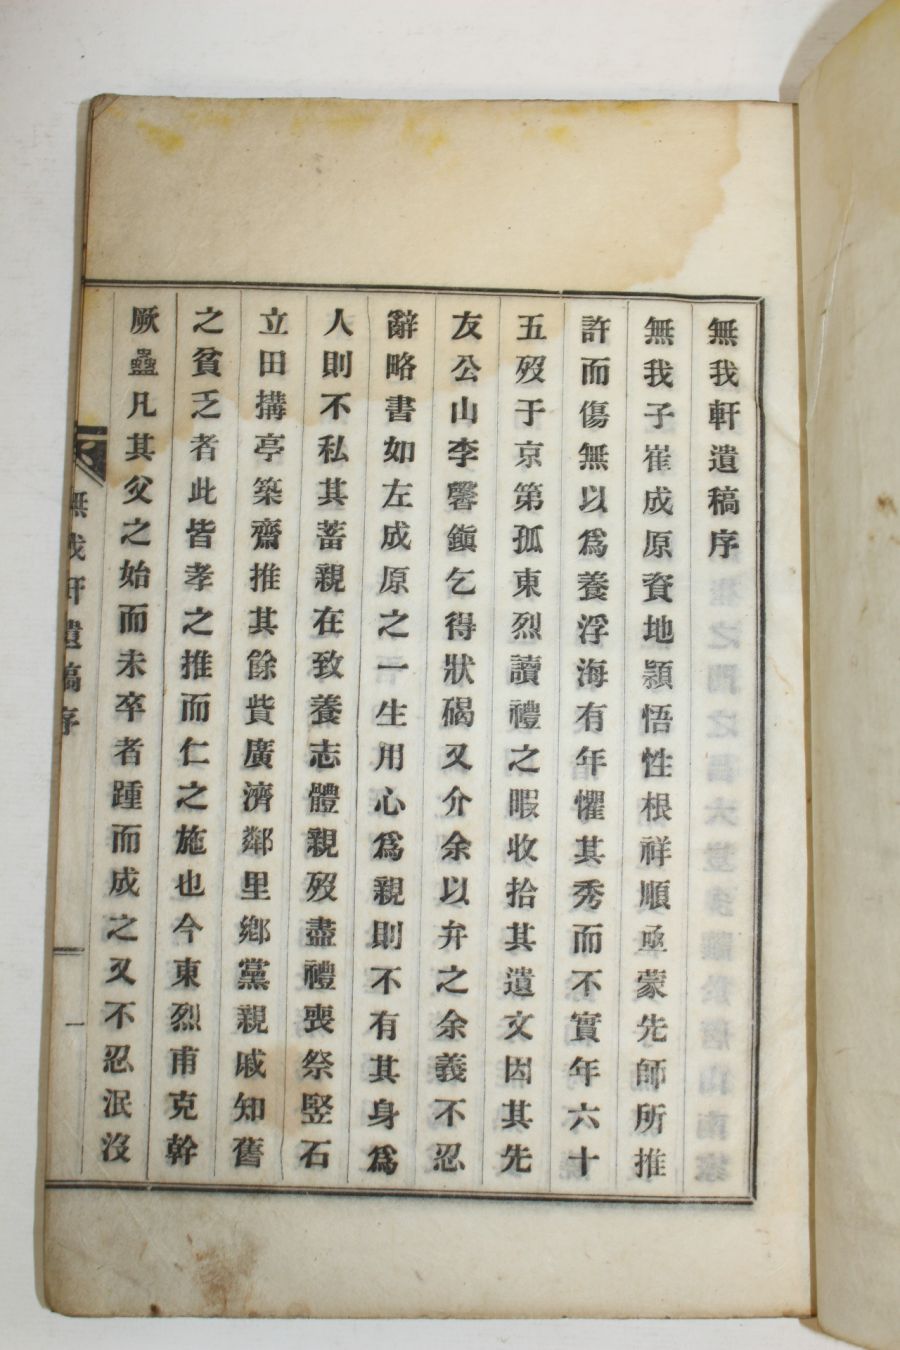 無我軒遺稿序
無我子崔成原資地頴悟性根祥順亟蒙先師所推
許而傷無以爲養浮海有年懼其秀而不實年六十
五歿于京第孤東烈讀禮之暇收拾其遺文因其先
友公山李馨鎭乞得狀碣又介余以弁之余義不忍
辭略書如左成原之一生用心爲親則不有其身爲
人則不私其蓄親在致養志體親歿盡禮喪祭竪石
立田搆亭築齋推其餘貲廣濟鄰里鄕黨親戚知舊
之貧乏者此皆孝之推而仁之施也今東烈甫克幹
厥蠱凡其父之始而未卒者踵而成之又不忍泯沒
無我軒遺稿序
一